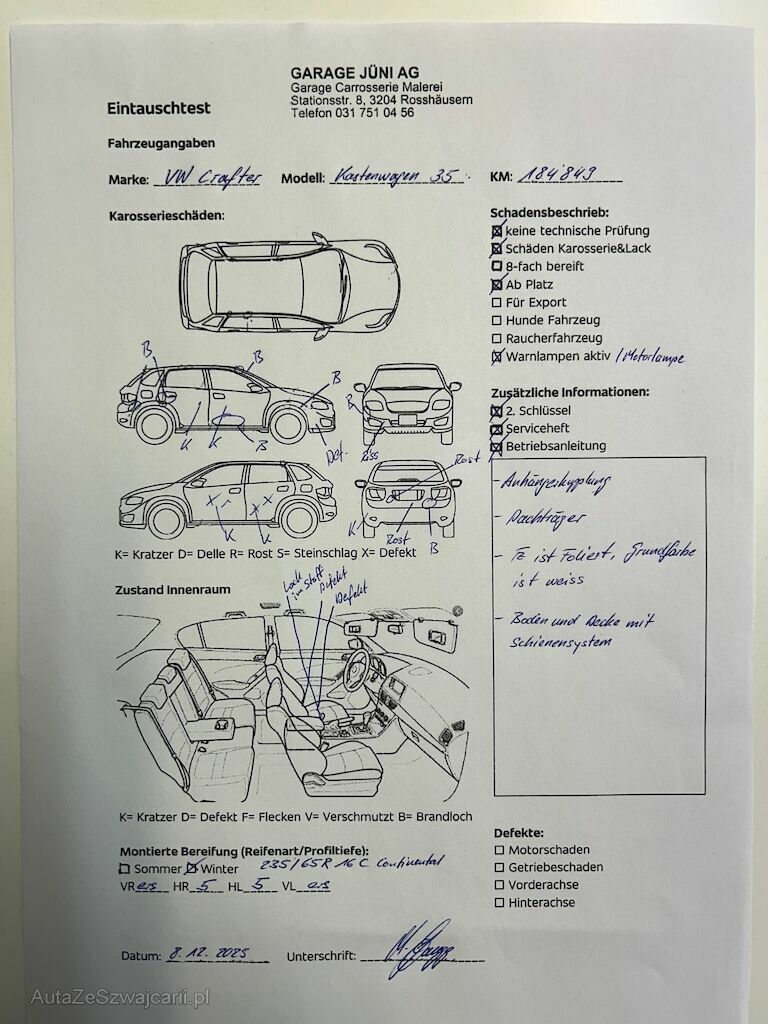 GARAGE JÜNI AG
Garage Carrosserie Malerei
Stationsstr. 8, 3204 Rosshäusern
Telefon 031 751 04 56
Eintauschtest
Fahrzeugangaben
Marke: VW Crafter Modell: Kastenwagen 35 KM: 184'849
Karosserieschäden:
Schadensbeschrieb:
keine technische Prüfung
Schäden Karosserie&Lack
8-fach bereift
Ab Platz
Für Export
Hunde Fahrzeug
Raucherfahrzeug
Warnlampen aktiv / Motorlampe
B B B B
K K B Def. Riss
Rost
K K K Rost B
K= Kratzer D= Delle R= Rost S= Steinschlag X= Defekt
Zusätzliche Informationen:
2. Schlüssel
Serviceheft
Betriebsanleitung
- Anhängerkupplung
- Dachträger
- Fz ist Foliert, Grundfarbe
ist weiss
- Boden und Decke mit
Schienensystem
Zustand Innenraum
Loch
im Stoff
Defekt
Defekt
K= Kratzer D= Defekt F= Flecken V= Verschmutzt B= Brandloch
Montierte Bereifung (Reifenart/Profiltiefe):
Sommer Winter 235/65R 16C Continental
VR ers HR 5 HL 5 VL ers
Defekte:
Motorschaden
Getriebeschaden
Vorderachse
Hinterachse
Datum: 8.12.2025 Unterschrift:
AutaZeSzwajcarii.pl